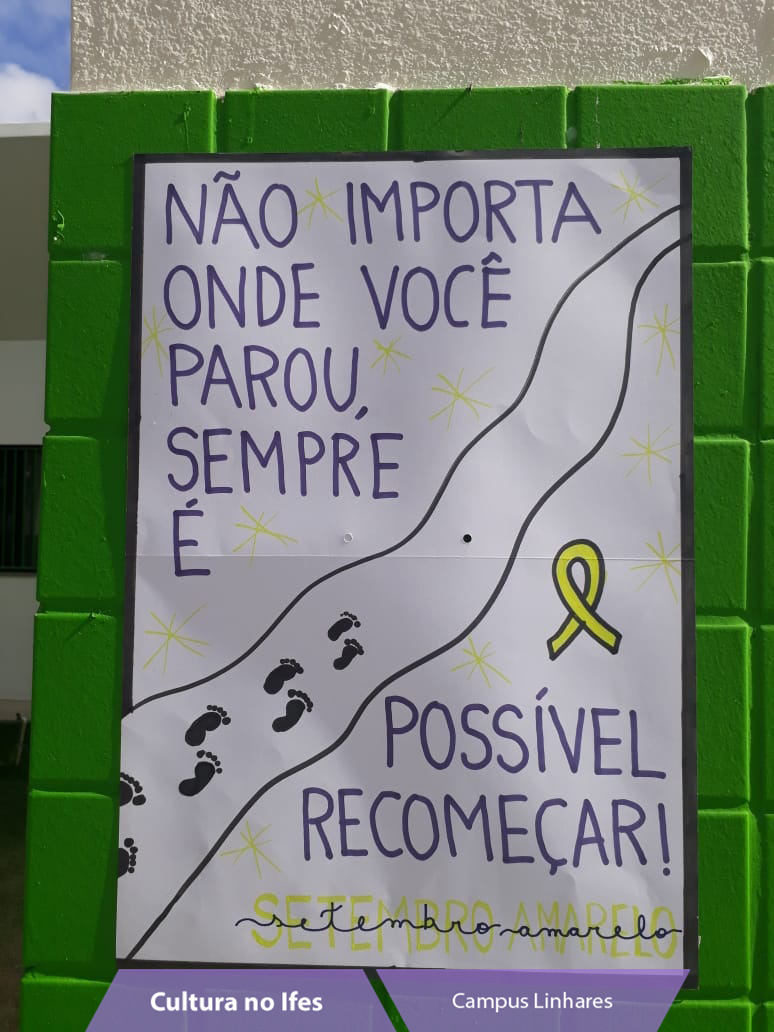 NÃO IMPORTA
ONDE VOCÊ
PAROU,
SEMPRE
É
POSSÍVEL
RECOMEÇAR!
SETEMBRO AMARELO
setembro amarelo
Cultura no Ifes
Campus Linhares